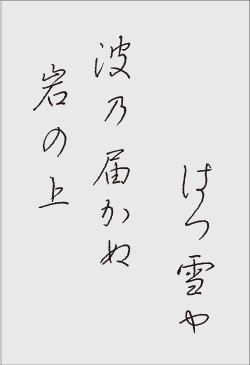 はつ雪や
波乃届かぬ
岩の上